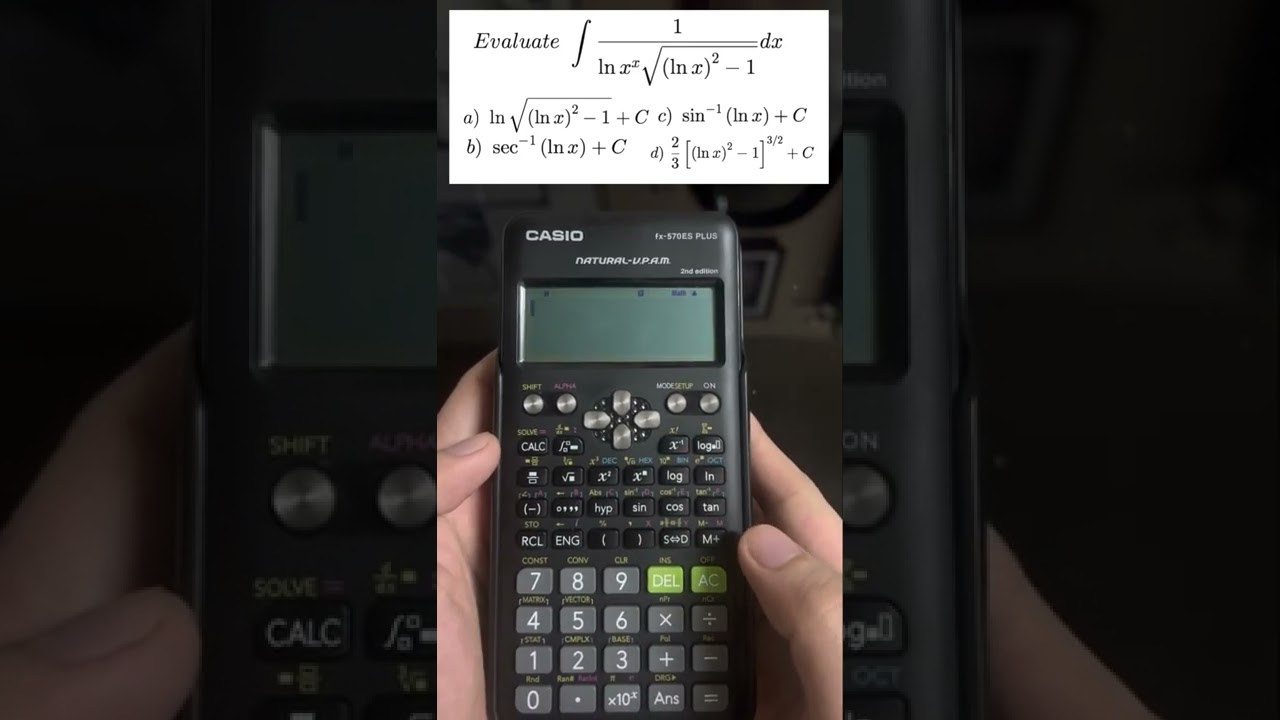 Evaluate ∫ 1 / (ln xˣ √((ln x)² − 1)) dx
a) ln √((ln x)² − 1) + C c) sin⁻¹ (ln x) + C
b) sec⁻¹ (ln x) + C d) 2/3 [(ln x)² − 1]^{3/2} + C
CASIO fx-570ES PLUS
NATURAL-V.P.A.M.
2nd edition
Math ▲
SHIFT ALPHA MODE SETUP ON
SOLVE = x!
CALC ∫ x⁻¹ log
x³ DEC HEX 10ˣ BIN eˣ OCT
√ x² xˣ log ln
Abs sin⁻¹ cos⁻¹ tan⁻¹
(−) hyp sin cos tan
STO ← i % , X Y M− M
RCL ENG ( ) S⇔D M+
CONST CONV CLR INS OFF
7 8 9 DEL AC
MATRIX VECTOR nPr nCr
4 5 6 × ÷
STAT CMPLX BASE Pol Rec
1 2 3 + −
Rnd Ran# RanInt π DRG▶
0 • ×10ˣ Ans =
dition
SHIFT ALPHA ON
SOLVE =
CALC ∫ log
OCT